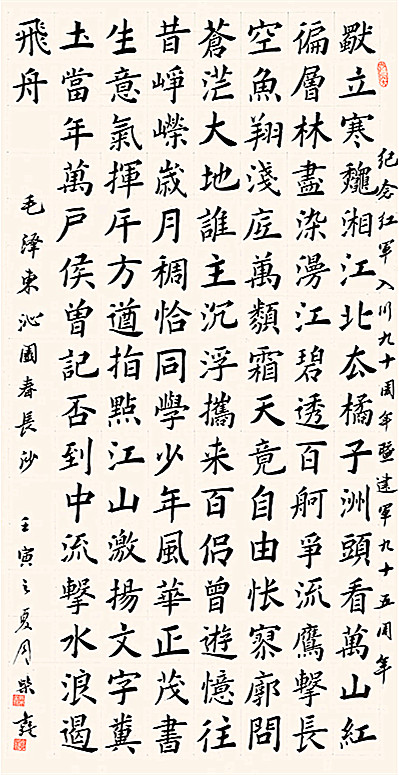 紀念红軍入川九十周年暨建軍九十五周年
獨立寒龝湘江北去橘子洲頭看萬山紅
徧層林盡染漫江碧透百舸爭流鷹擊長
空魚翔淺底萬類霜天竟自由悵寥廓問
蒼茫大地誰主沉浮攜来百侶曾遊憶往
昔崢嶸歲月稠恰同學少年風華正茂書
生意氣揮斥方遒指點江山激揚文字糞
土當年萬戶侯曾記否到中流擊水浪遏
飛舟
毛泽東沁園春長沙 壬寅之夏周